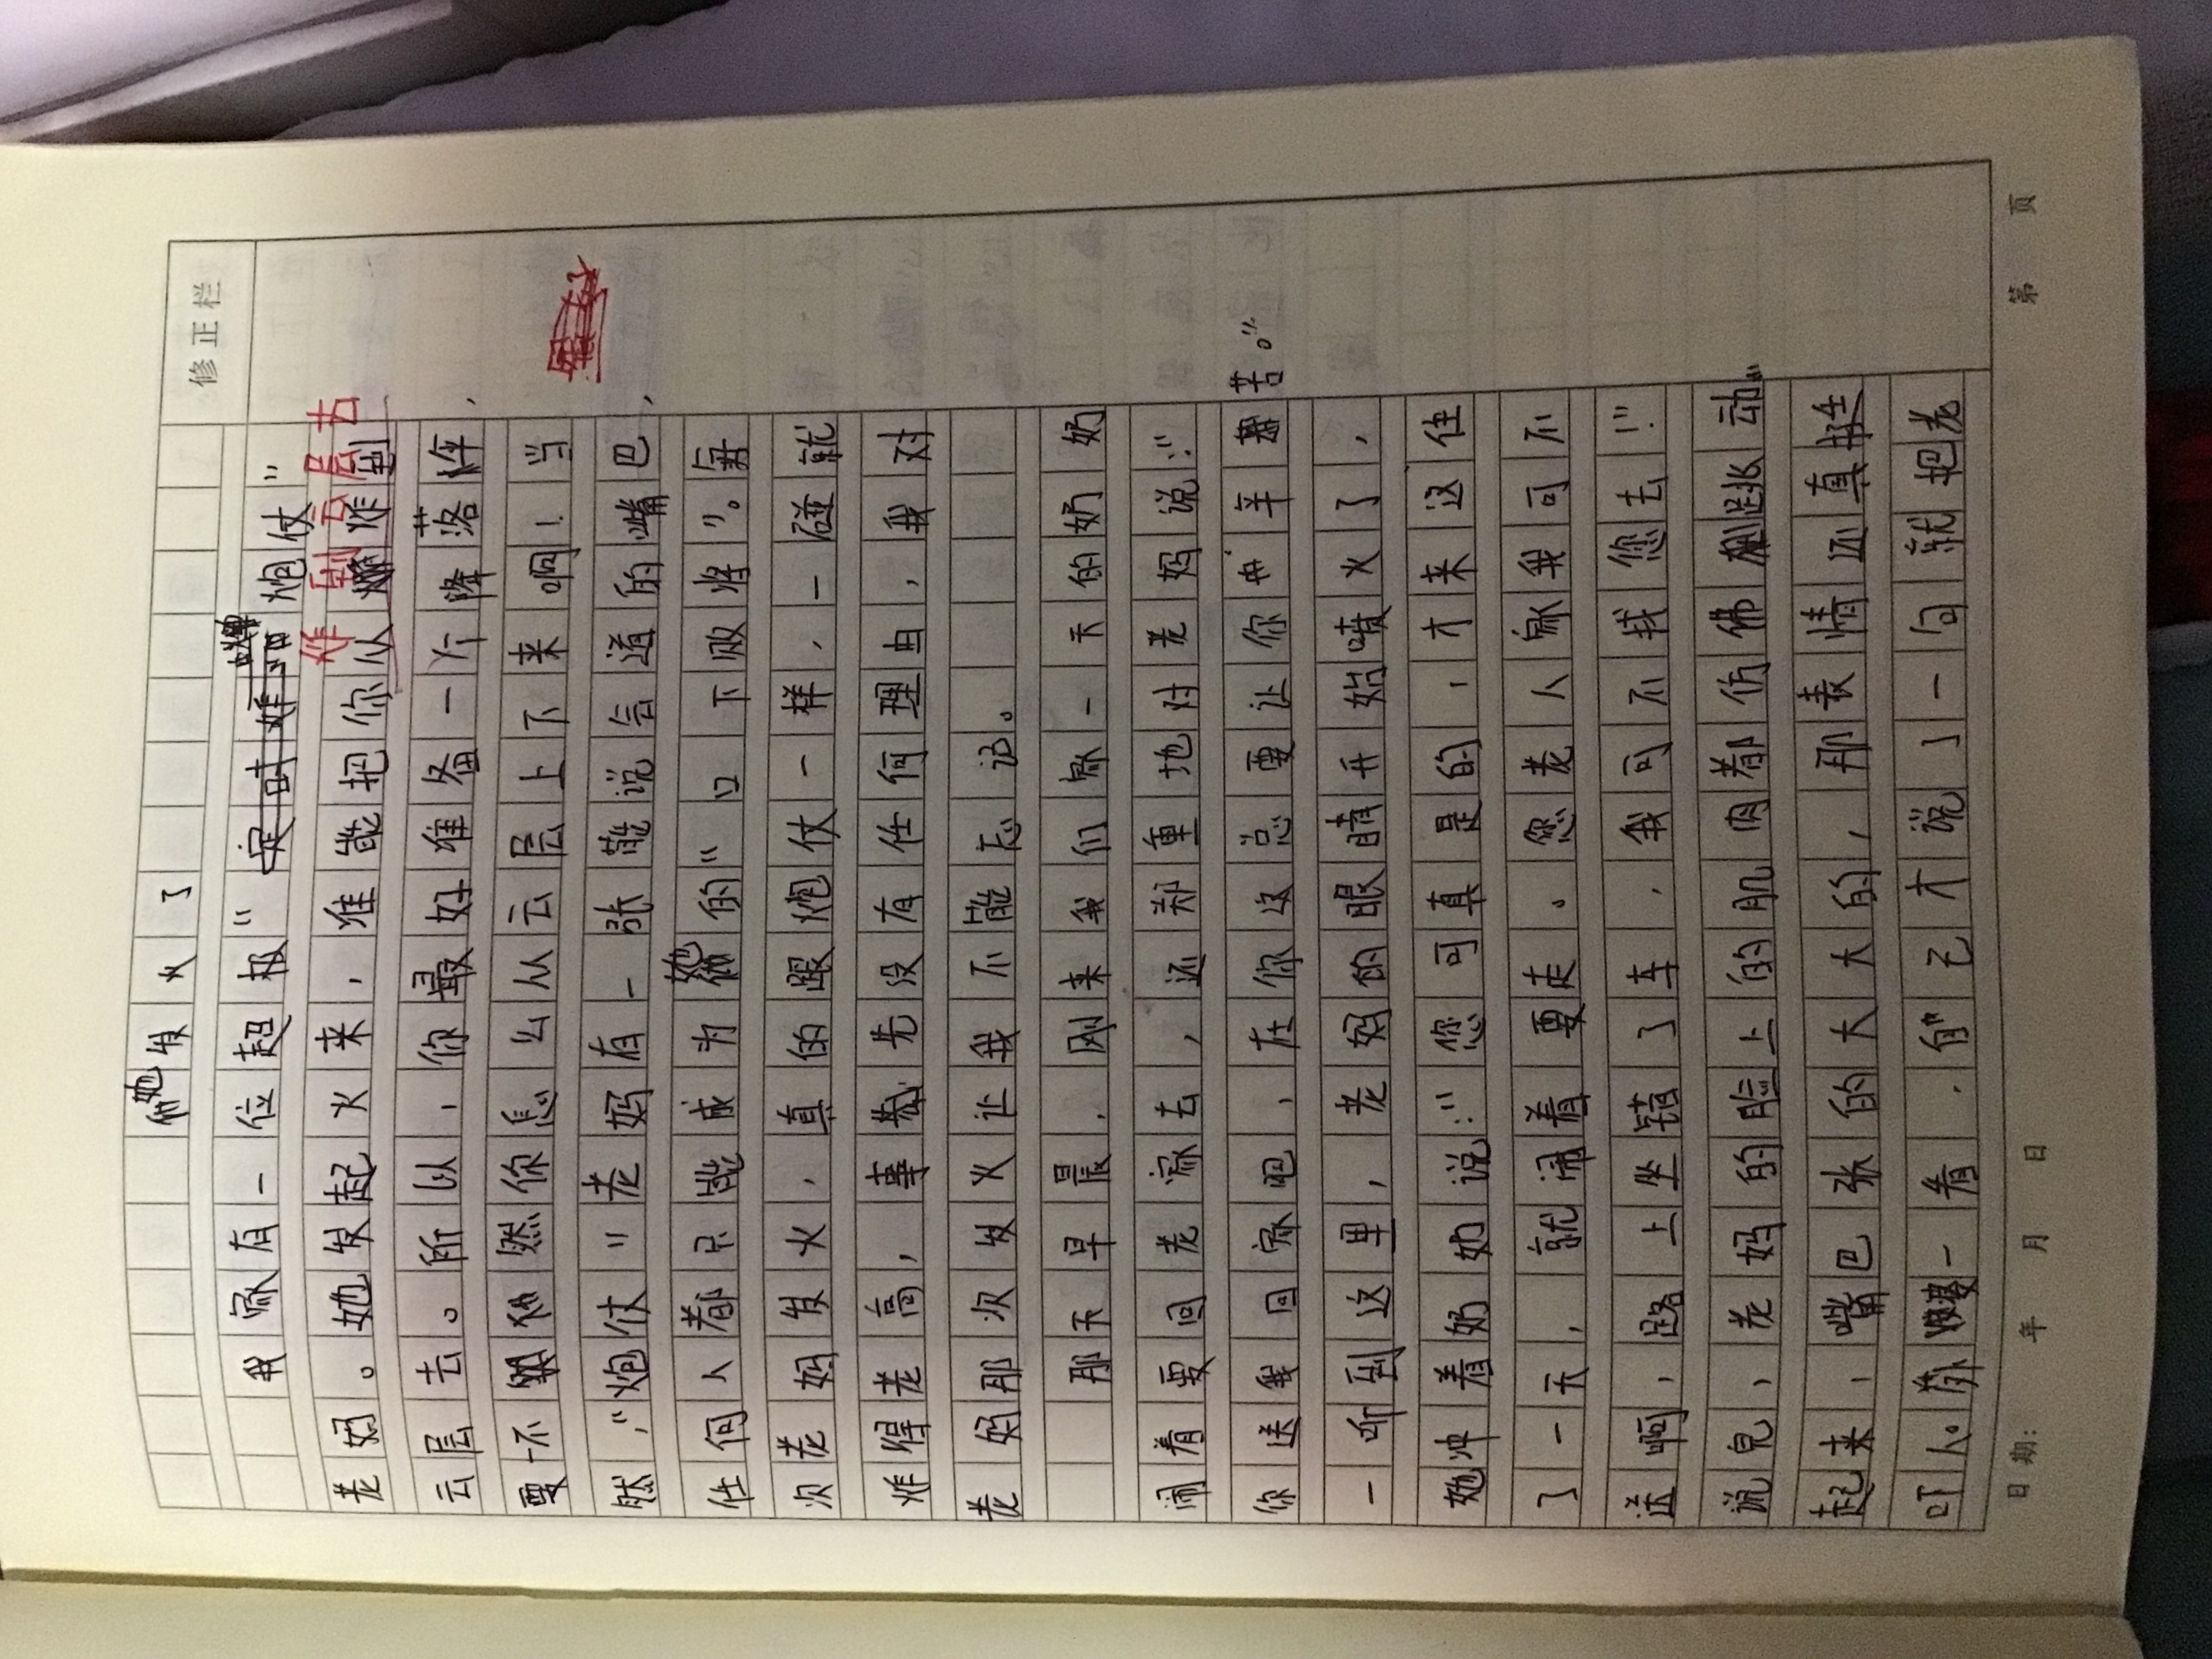 她发火了
修正栏
我家有一位超极“炮仗”
老妈。她发起火来，准能把你从炸到
炸到云层去
云层去。所以，你最好准备一个降落伞，
要不然你怎么从云层上下来啊！当
然，“炮仗”老妈有一张能说会道的嘴巴，
任何人都只能成为她的“口下败将”。每
次老妈发火，真的跟炮仗一样，一碰就
炸得老高，事先没有任何理由，我对
老妈那次发火让我不能忘记。
那天早晨，刚来我们家一天的奶奶
闹着要回老家去，还郑重地对老妈说：“
你送我回家吧，在你这总要让你辛苦。”
一听到这里，老妈的眼睛开始喷火了，
她冲着奶奶说：“您可真是的，才来这住
了一天，就闹着要走。您老人家我可不
送啊，路上坐错了车，我可不找您去！”
说完，老妈的脸上的肌肉都仿佛跳动
起来，嘴巴张的大大的，那表情还真
吓人。婆一看，自己才说了一句就把老
日期： 年 月 日
第 页